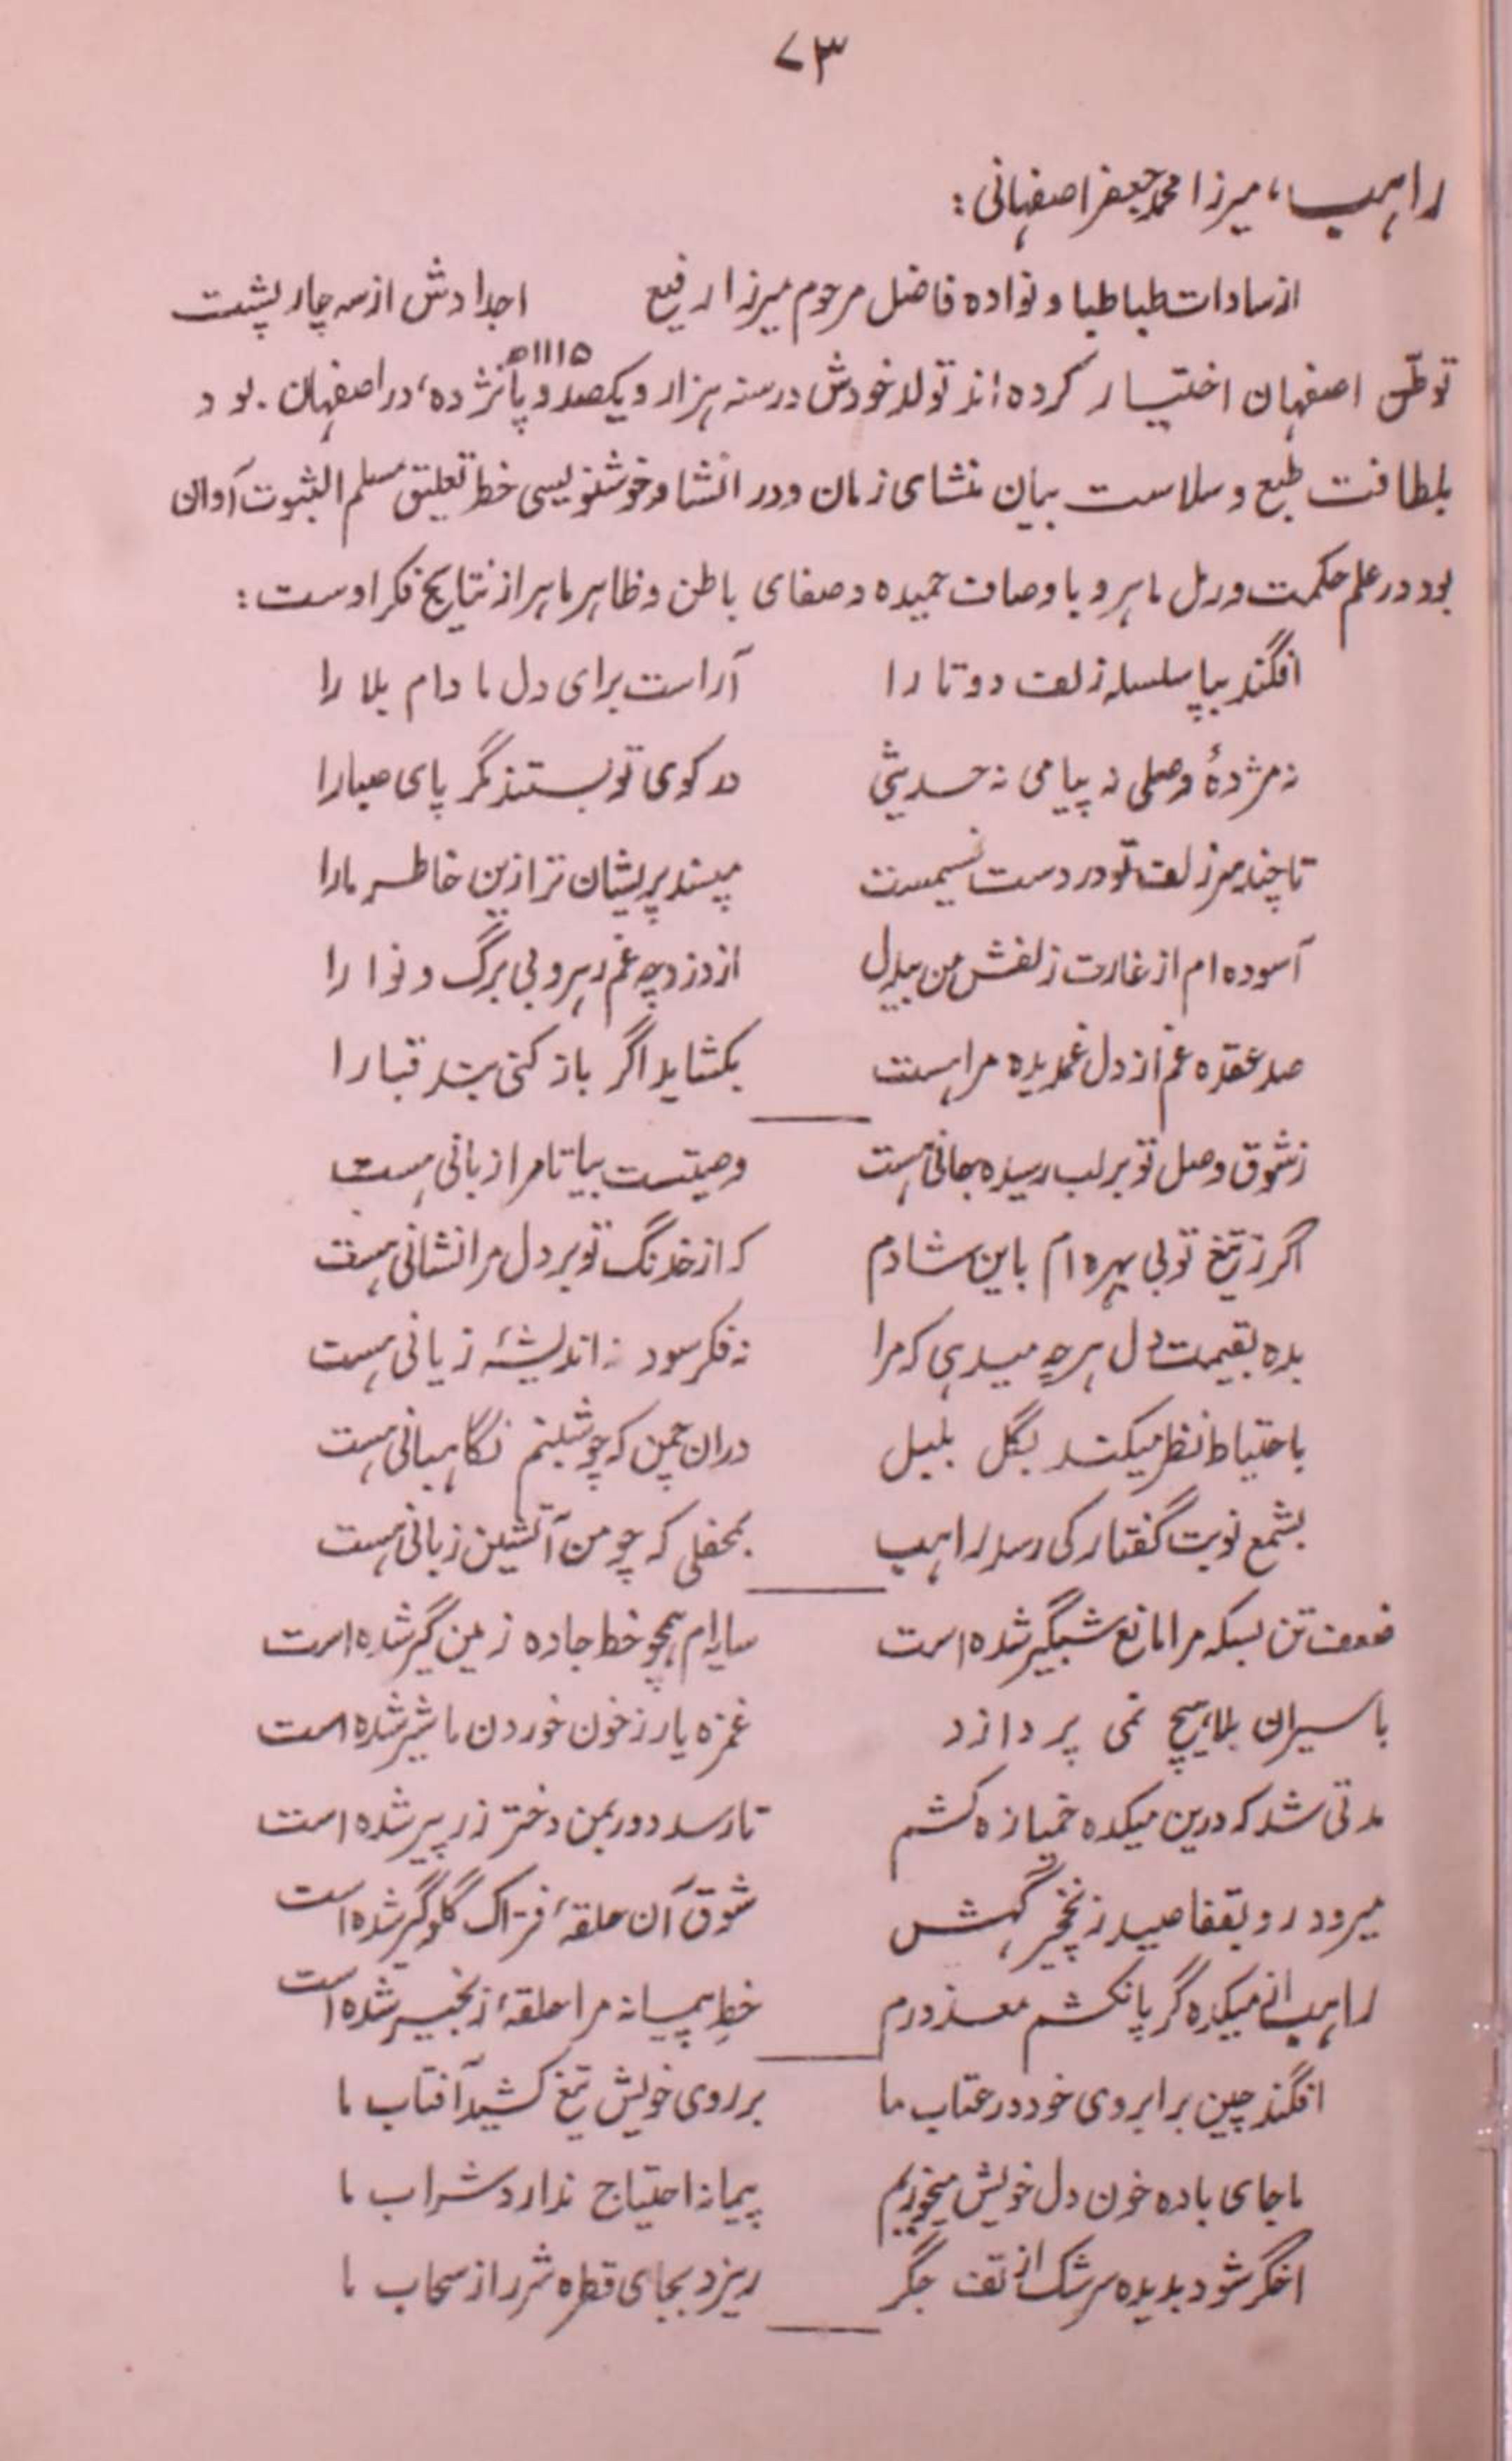 ۷۳
راهب، میرزا محمد جعفر اصفهانی:
از سادات طباطبا و نواده فاضل مرحوم میرزا رفیع اجدادش از سه چار پشت
۱۱۱۵ه
توطّن اصفهان اختیار کرده اند تولد خودش در سنه هزار و یکصد و پانژده، در اصفهان بود
بلطافت طبع و سلاست بیان منشای زمان و در انشا و خوشنویسی خط تعلیق مسلم الثبوت آوان
بود در علم حکمت و رمل ماهر و با وصاف حمیده و صفای باطن و ظاهر ماهر از نتایج فکر اوست:
افگند بپا سلسله زلف دوتا را آراست برای دل ما دام بلا را
نه مژدهٔ وصلی نه پیامی نه حدیثی در کوی تو بستند مگر پای صبا را
تا چند سر زلف تو در دست نسیمست مپسند پریشان تر ازین خاطر ما را
آسوده ام از غارت زلفش من بیدل از دزد چه غم رهرو بی برگ و نوا را
صد عقده غم از دل غمدیده مرا هست بکشاید اگر باز کنی بند قبا را
ز شوق وصل تو بر لب رسیده جانی هست وصیتست بیا تا مرا زبانی هست
اگر ز تیغ تو بی بهره ام باین شادم که از خدنگ تو بر دل مرا نشانی هست
بده بقیمت دل هرچه میدهی که مرا نه فکر سود نه اندیشهٔ زیانی هست
باحتیاط نظر میکند بگل بلبل دران چمن که چو شبنم نگاهبانی هست
بشمع نوبت گفتار کی رسد راهب بمحفلی که چو من آتشین زبانی هست
ضعف تن بسکه مرا مانع شبگیر شده است سایه ام همچو خط جاده زمین گیر شده است
باسیران بلا هیچ نمی پردازد غمزه یار ز خون خوردن ما شیر شده است
مدتی شد که درین میکده خمیازه کشم تا رسد دور بمن دختر رز پیر شده است
میرود رو بقفا صید ز نخچیر گهش شوق آن حلقهٔ فتراک گلوگیر شده است
راهب از میکده گر پا نکشم معذورم خط پیمانه مرا حلقهٔ زنجیر شده است
افگند چین بر ابروی خود در عتاب ما بر روی خویش تیغ کشید آفتاب ما
ما جای باده خون دل خویش میخوریم پیمانه احتیاج ندارد شراب ما
اخگر شود بدیده سرشک از تف جگر ریزد بجای قطره شرر از سحاب ما